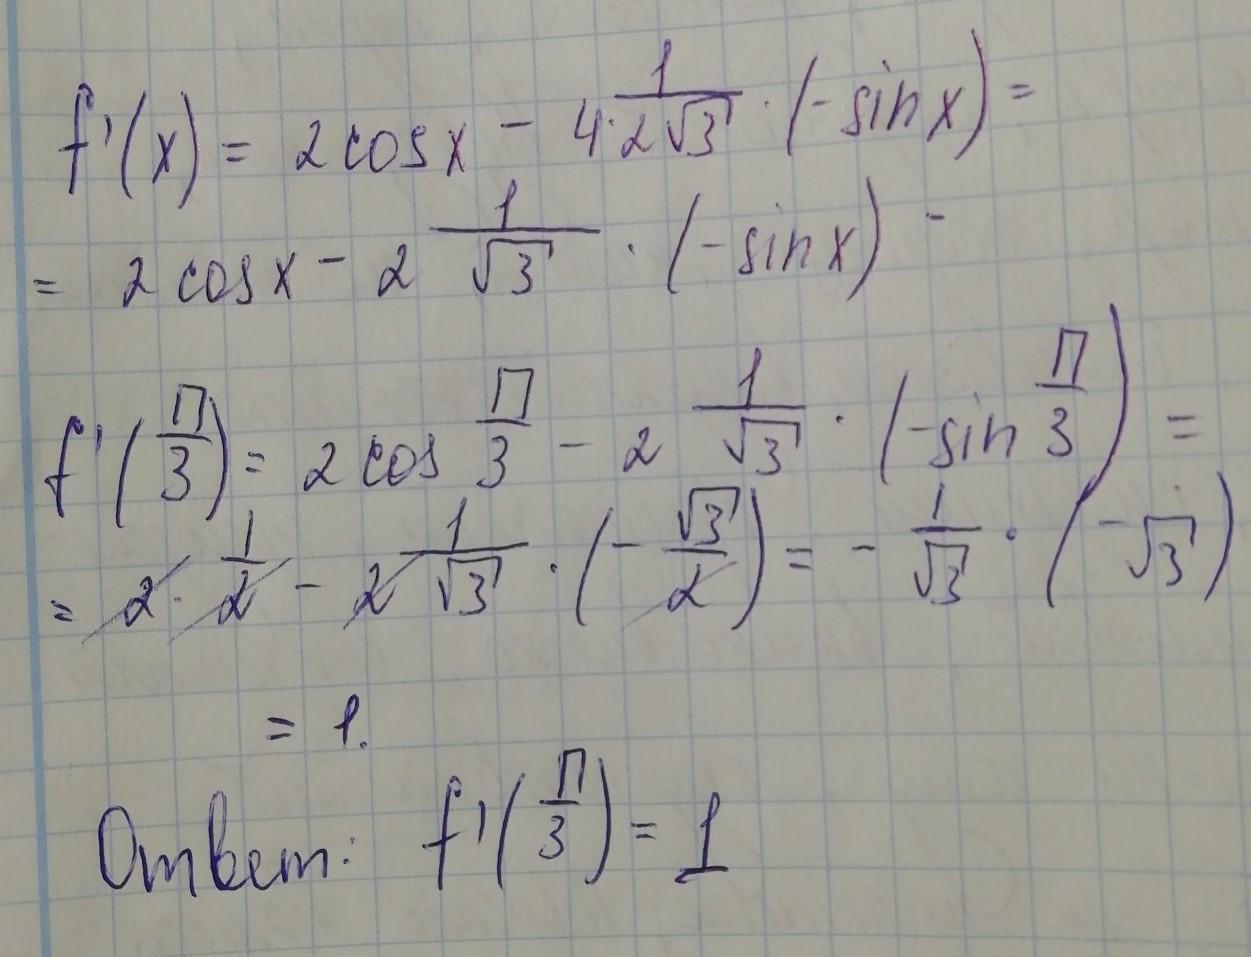 f'(x) = 2cosx - 4·1/2√3 · (-sinx) =
= 2cosx - 2 1/√3 · (-sinx) -
f'(П/3) = 2cos П/3 - 2 1/√3 · (-sin П/3) =
= 2 · 1/2 - 2 1/√3 · (-√3/2) = - 1/√3 · (-√3)
= 1.
Ответ: f'(П/3) = 1